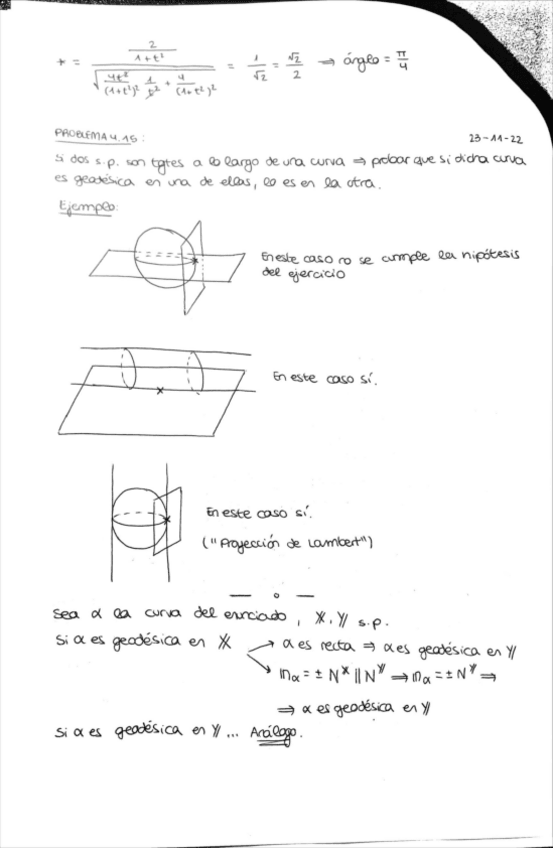 * = \frac{\frac{2}{1+t^2}}{\sqrt{\frac{4t^2}{(1+t^2)^2} \frac{1}{t^2} + \frac{4}{(1+t^2)^2}}} = \frac{1}{\sqrt{2}} = \frac{\sqrt{2}}{2} ⇒ árgeo = \frac{π}{4}
PROBLEMA 4.15: 23-11-22
Si dos s.p. son tgtes a lo largo de una curva ⇒ probar que si dicha curva
es geodésica en una de ellas, lo es en la otra.
Ejemplo:
En este caso no se cumple la hipótesis
del ejercicio
En este caso sí.
En este caso sí.
("Proyección de Lambert")
— o —
Sea α la curva del enunciado, X, Y s.p.
Si α es geodésica en X → α es recta ⇒ α es geodésica en Y
↘ n_α = ± N^X ∥ N^Y ⇒ n_α = ± N^Y ⇒
⇒ α es geodésica en Y
Si α es geodésica en Y ... Análogo.